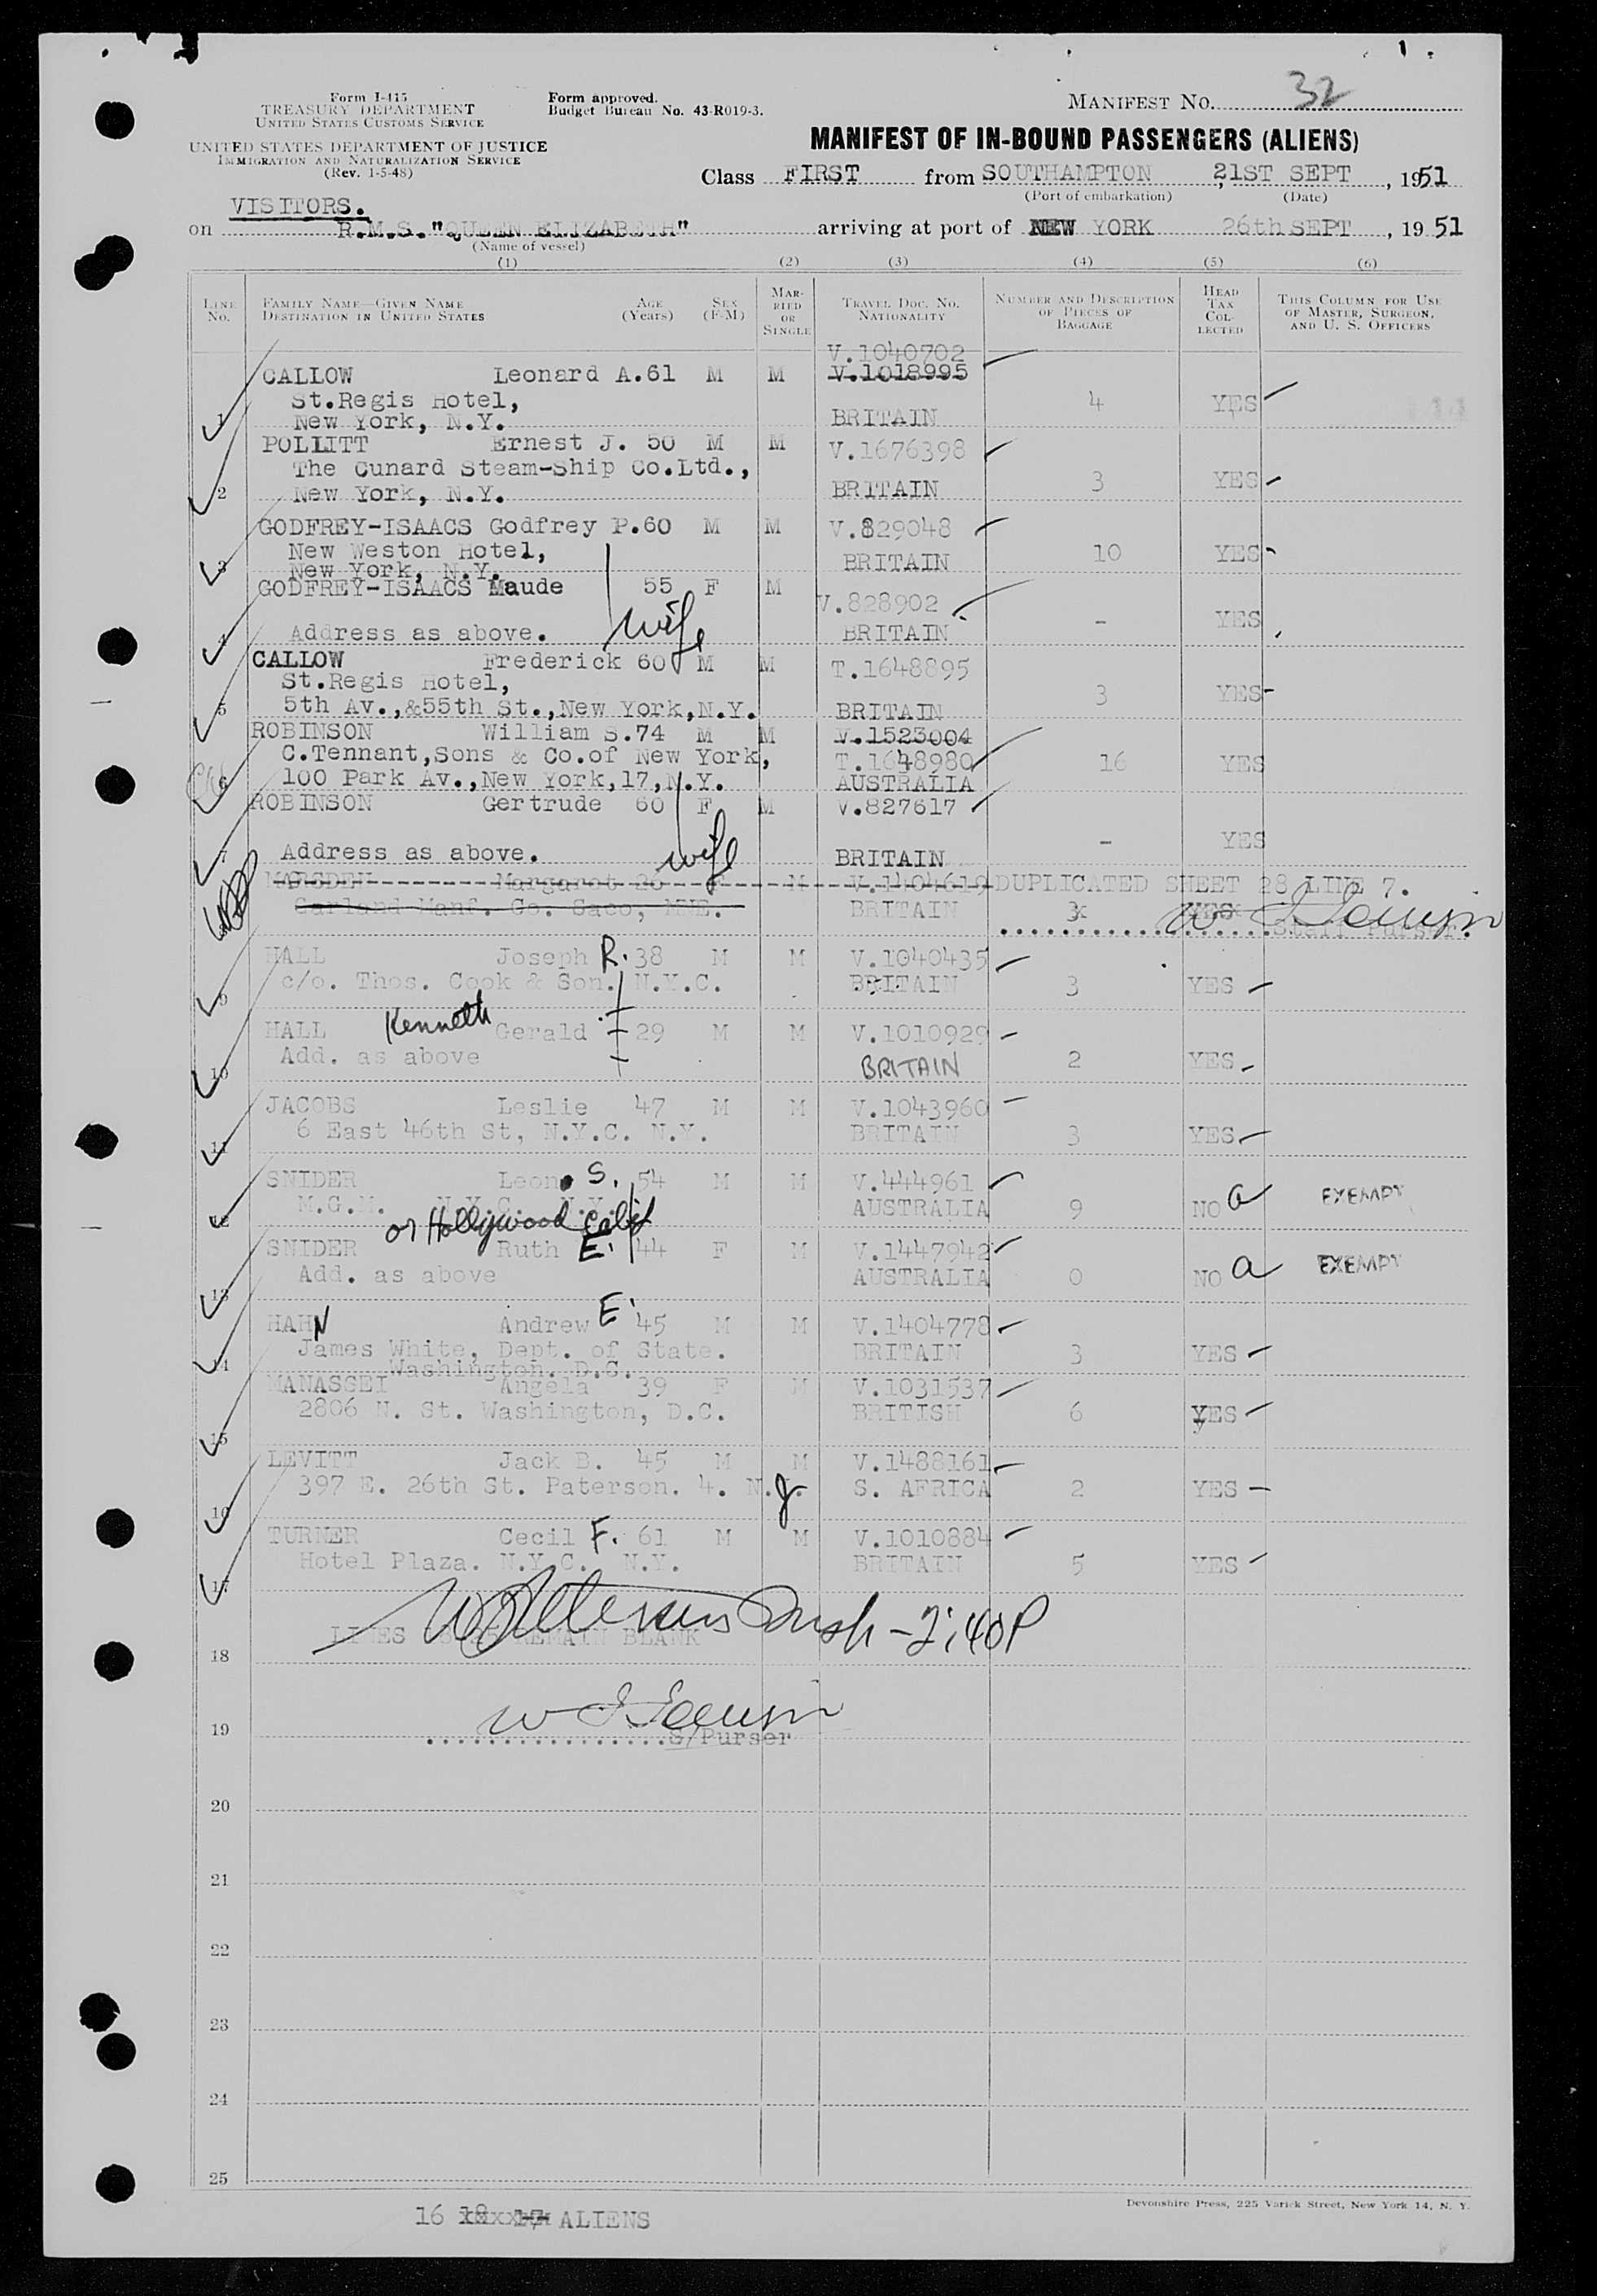 Form I-415
TREASURY DEPARTMENT
UNITED STATES CUSTOMS SERVICE
UNITED STATES DEPARTMENT OF JUSTICE
IMMIGRATION AND NATURALIZATION SERVICE
(Rev. 1-5-48)
Form approved.
Budget Bureau No. 43-R019-3.
MANIFEST NO. 32
MANIFEST OF IN-BOUND PASSENGERS (ALIENS)
Class FIRST from SOUTHAMPTON, 21ST SEPT, 1951
(Port of embarkation) (Date)
VISITORS.
on R.M.S."QUEEN ELIZABETH" arriving at port of NEW YORK 26th SEPT, 1951
(Name of vessel)
(1) (2) (3) (4) (5) (6)
LINE NO. FAMILY NAME—GIVEN NAME DESTINATION IN UNITED STATES AGE (Years) SEX (F-M) MARRIED OR SINGLE TRAVEL DOC. NO. NATIONALITY NUMBER AND DESCRIPTION OF PIECES OF BAGGAGE HEAD TAX COLLECTED THIS COLUMN FOR USE OF MASTER, SURGEON, AND U. S. OFFICERS
V.1040702
CALLOW Leonard A. 61 M M V.1018995
St.Regis Hotel, 4 YES
1 New York, N.Y. BRITAIN
POLLITT Ernest J. 50 M M V.1676398
The Cunard Steam-Ship Co.Ltd., 3 YES
2 New York, N.Y. BRITAIN
GODFREY-ISAACS Godfrey P. 60 M M V.829048
New Weston Hotel, 10 YES
3 New York, N.Y. BRITAIN
GODFREY-ISAACS Maude 55 F M V.828902
wife - YES
4 Address as above. BRITAIN
CALLOW Frederick 60 M M T.1648895
St.Regis Hotel, 3 YES
5 5th Av.,&55th St.,New York,N.Y. BRITAIN
ROBINSON William S. 74 M M V.1523004
C.Tennant,Sons & Co.of New York, T.1648980 16 YES
6 100 Park Av.,New York,17,N.Y. AUSTRALIA
ROBINSON Gertrude 60 F M V.827617
wife - YES
7 Address as above. BRITAIN
MARSDEN Margaret 26 F M V.1404619 DUPLICATED SHEET 28 LINE 7.
Garland Manf. Co. Saco, MNE. BRITAIN 3x YES
Staff Purser.
HALL Joseph R. 38 M M V.1040435
9 c/o. Thos. Cook & Son. N.Y.C. BRITAIN 3 YES
HALL Kenneth Gerald 29 M M V.1010929
10 Add. as above BRITAIN 2 YES
JACOBS Leslie 47 M M V.1043960
11 6 East 46th St, N.Y.C. N.Y. BRITAIN 3 YES
SNIDER Leon S. 54 M M V.444961
12 M.G.M. N.Y.C. N.Y. AUSTRALIA 9 NO a EXEMPT
or Hollywood Calif
SNIDER Ruth E. 44 F M V.1447942
13 Add. as above AUSTRALIA 0 NO a EXEMPT
HAHN Andrew E. 45 M M V.1404778
James White, Dept. of State. BRITAIN 3 YES
14 Washington. D.C.
MANASSEI Angela 39 F M V.1031537
15 2806 N. St. Washington, D.C. BRITISH 6 YES
LEVITT Jack B. 45 M M V.1488161
16 397 E. 26th St. Paterson. 4. N.J. S. AFRICA 2 YES
TURNER Cecil F. 61 M M V.1010884
17 Hotel Plaza. N.Y.C. N.Y. BRITAIN 5 YES
LINES REMAIN BLANK
2:40P
18
19 S/Purser
20
21
22
23
24
25
Devonshire Press, 225 Varick Street, New York 14, N. Y.
16 18xx 17 ALIENS